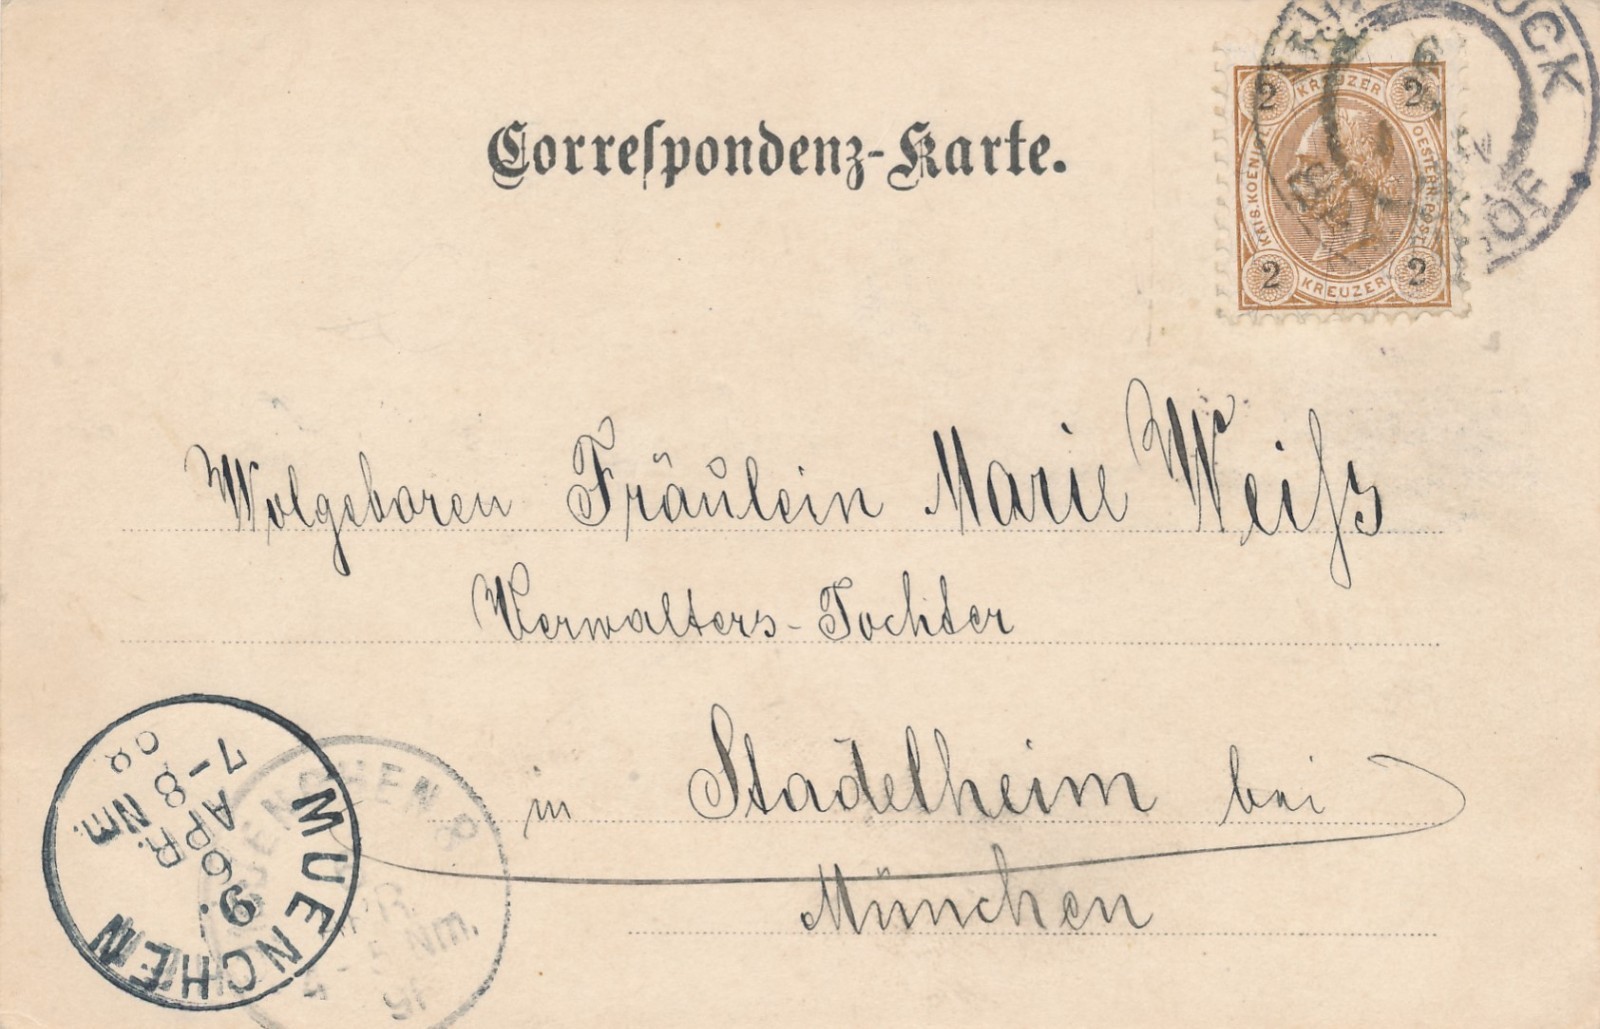 Correspondenz-Karte.
2 KREUZER 2
KAIS. KOENIGL. OESTERR. POST
2 KREUZER 2
Wolgeboren Fräulein Marie Weiß
Verwalters-Tochter
in Stadelheim bei
München
MUENCHEN 9.
8 APR.
7-8 Nm.
MUENCHEN 8
APR.
Nm.